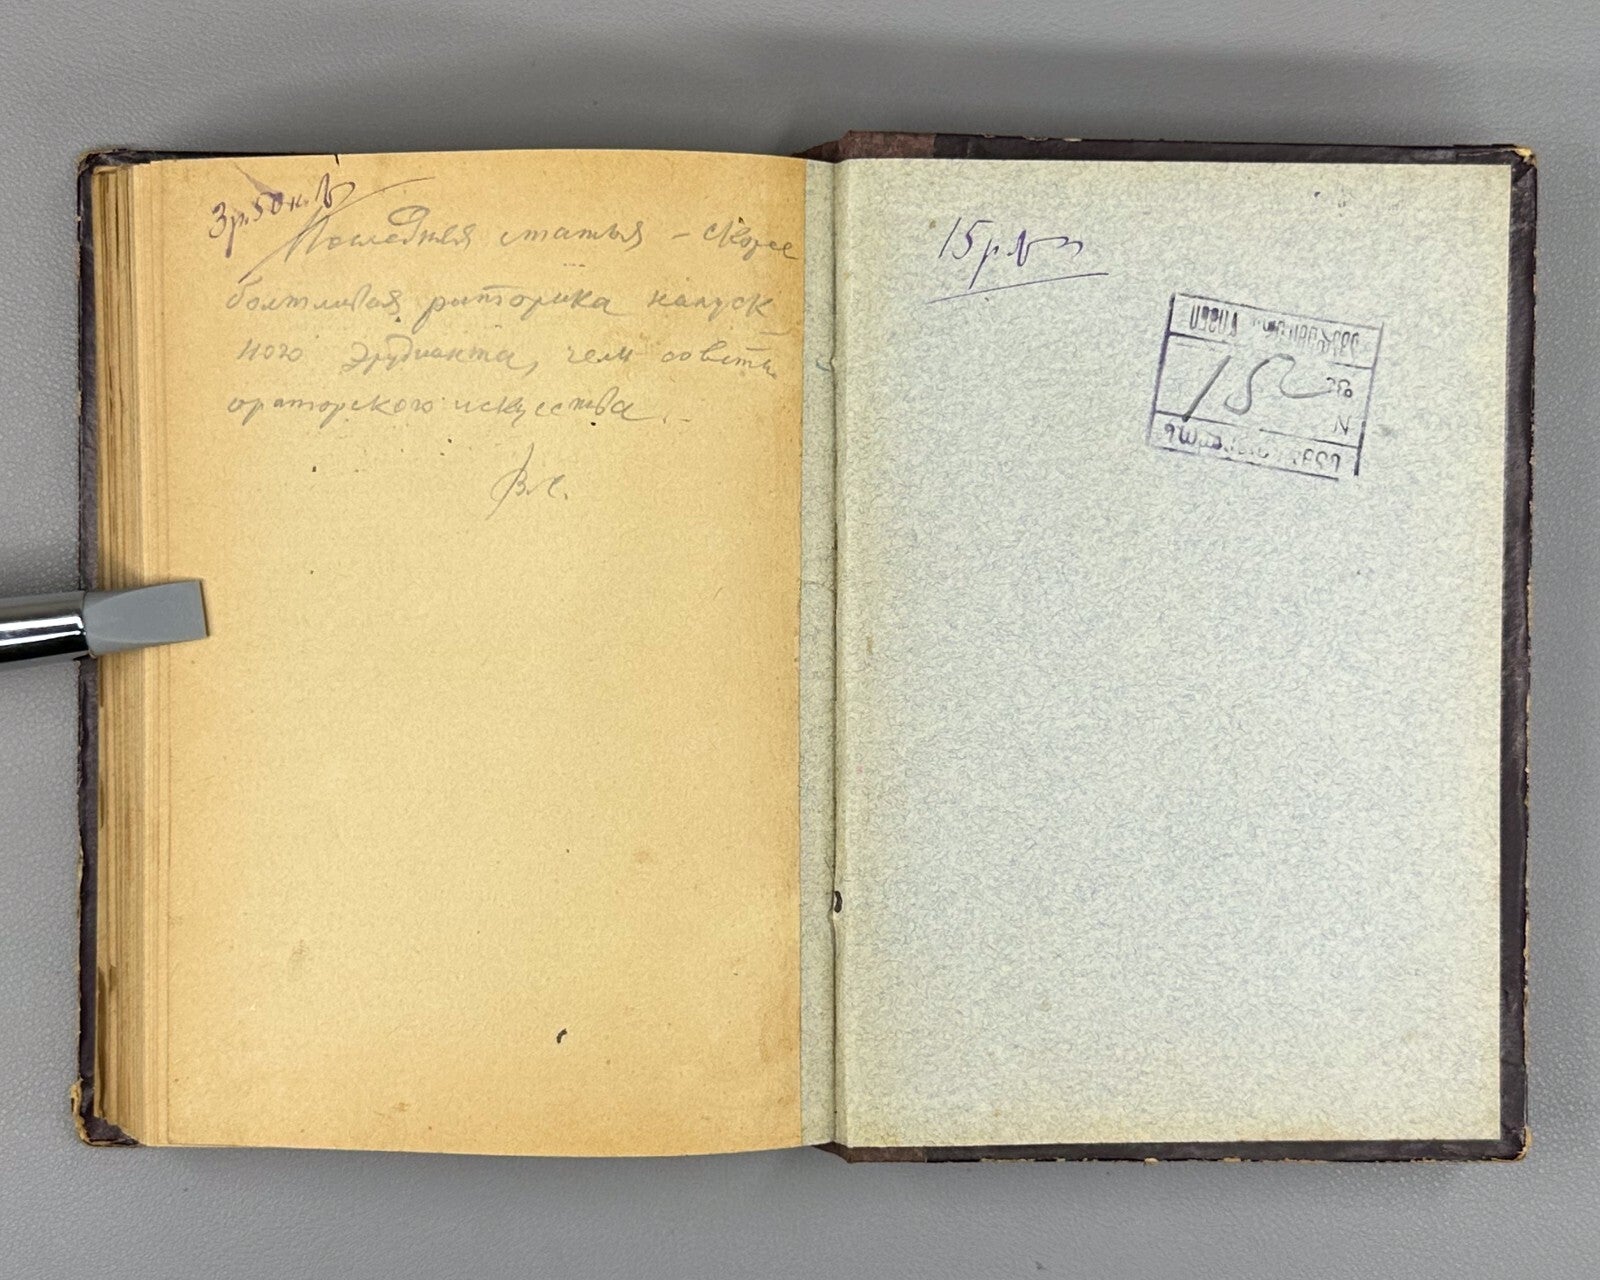 3р. 50к.
Последняя статья – скорее
болтливая риторика напуск
ного эрудианта, чем советы
ораторского искусства.
В.С.
15р.
15
№